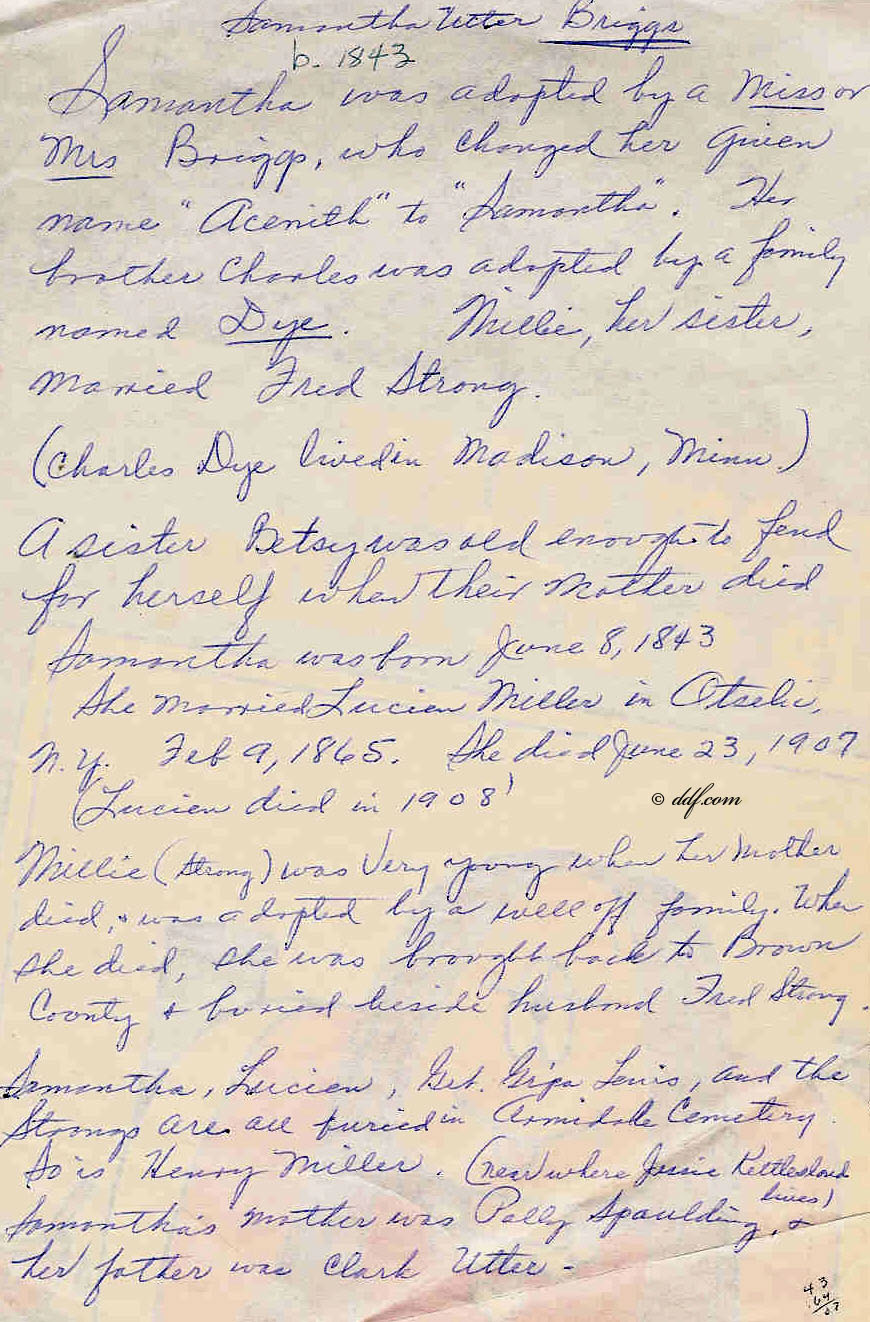 Samantha Utter Briggs
b. 1843
Samantha was adopted by a Miss or
Mrs Briggs, who changed her given
name "Acenith" to "Samantha". Her
brother Charles was adopted by a family
named Dye. Millie, her sister,
married Fred Strong.
(Charles Dye lived in Madison, Minn.)
A sister Betsy was old enough to fend
for herself when their mother died
Samantha was born June 8, 1843
She married Lucien Miller in Otselic,
N.Y. Feb 9, 1865. She died June 23, 1907
(Lucien died in 1908)
© ddf.com
Millie (Strong) was very young when her mother
died, & was adopted by a well off family. When
she died, she was brought back to Brown
County & buried beside husband Fred Strong.
Samantha, Lucien, Lewis, and the
Strongs are all buried in Armidale Cemetery.
So is Henry Miller. (near where Jessie
lives)
Samantha's mother was Polly Spaulding, &
her father was Clark Utter -
43
64
07